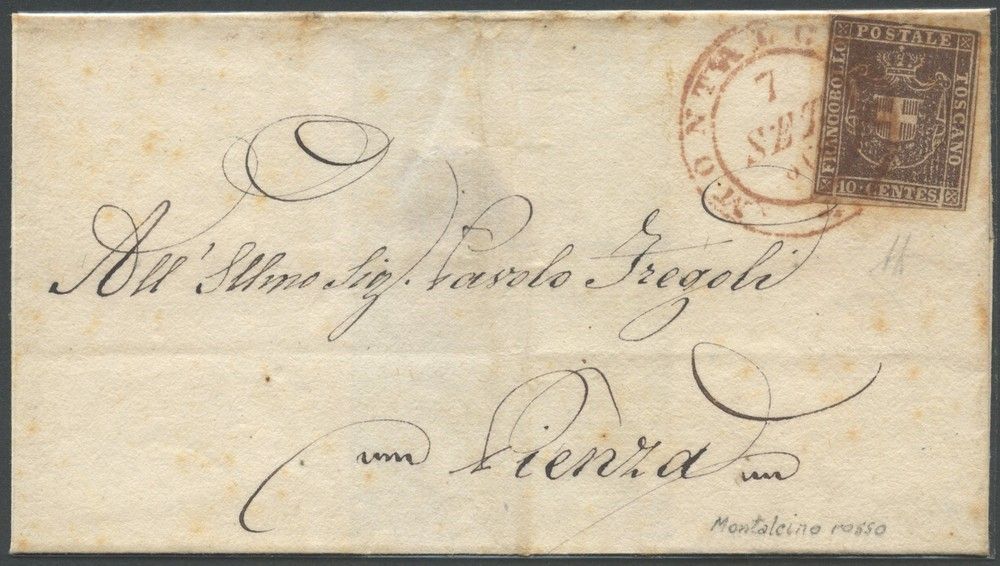 FRANCOBOLLO POSTALE TOSCANO
10 CENTES
MONTALC
7
SET
All' Illmo Sig. Pavolo Fregoli
Pienza
Montalcino rosso